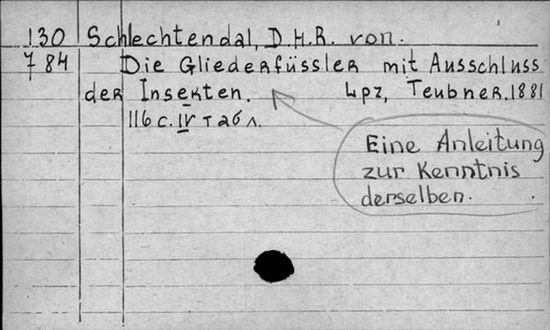 130 Schlechtendal, D.H.R. von.
784 Die Gliederfüssler mit Ausschluss
der Insekten. Lpz, Teubner, 1881
116 c. IV табл.
Eine Anleitung
zur Kenntnis
derselben.